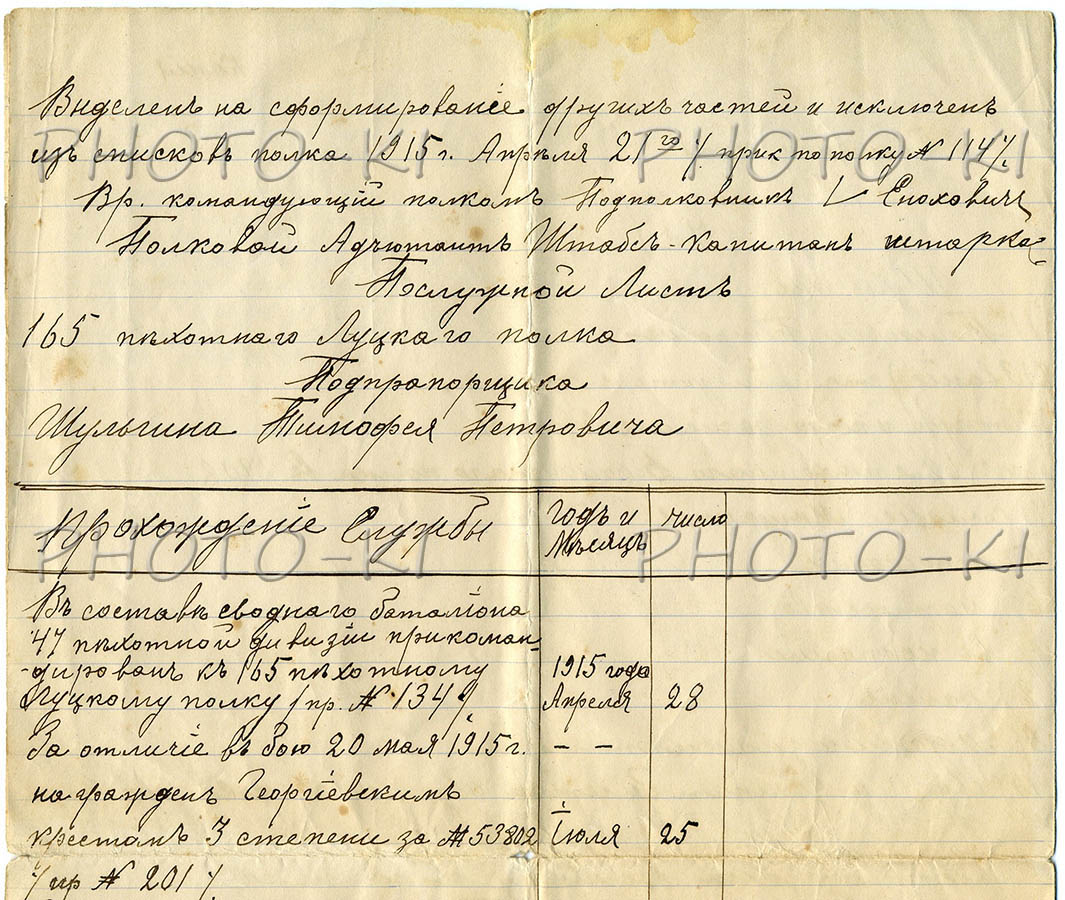 Выделенъ на сформированіе другихъ частей и исключенъ
изъ списковъ полка 1915 г. Апрѣля 21го / прик по полку № 114 /.
Вр. командующій полкомъ Подполковникъ Еноховичъ
Полковой Адъютантъ Штабсъ-Капитанъ Штарка
Послужной Листъ
165 пѣхотнаго Луцкаго полка
Подпрапорщика
Шульгина Тимофея Петровича
Прохожденіе Службы
годъ и Мѣсяцъ
число
Въ составѣ своднаго баталіона
47 пѣхотной дивизіи прикоман-
дированъ къ 165 пѣхотному
1915 года
Луцкому полку / пр. № 134 /
Апреля
28
За отличіе въ бою 20 мая 1915 г.
– –
награжденъ Георгіевскимъ
крестомъ 3 степени за № 53802
Іюля
25
/ пр № 201 /
PHOTO-KI
PHOTO-KI
PHOTO-KI
PHOTO-KI